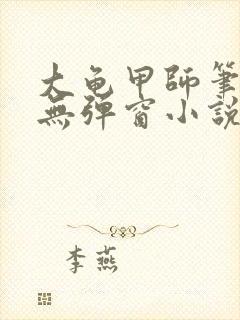 大龟甲師筆
無弹窗小説
李燕